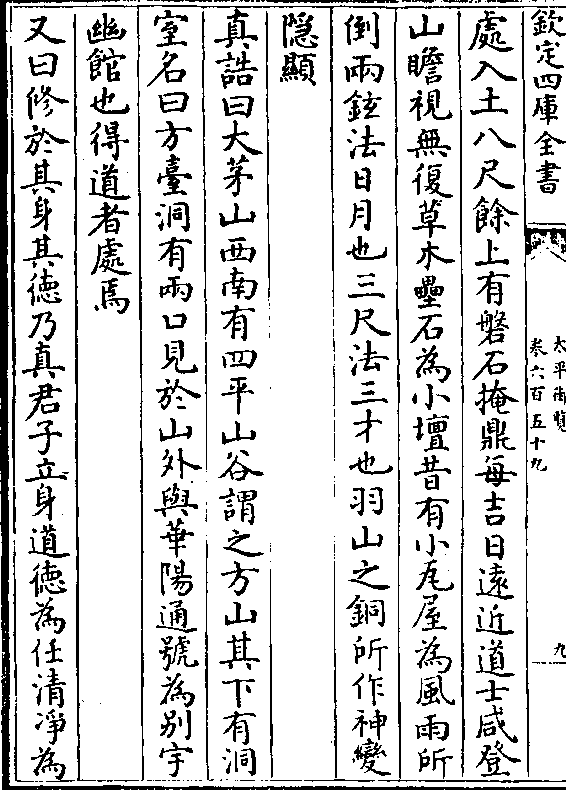 欽定四庫全書
太平御覽
卷六百五十九
九
處入土八尺餘上有磐石掩鼎每吉日遠近道士咸登
山瞻視無復草木壘石為小壇昔有小瓦屋為風雨所
倒兩鉉法日月也三尺法三才也羽山之銅所作神變
隠顯
真誥曰大茅山西南有四平山谷謂之方山其下有洞
室名曰方臺洞有兩口見於山外與華陽通號為别宇
幽館也得道者處焉
又曰修於其身其徳乃真君子立身道徳為任清凈為